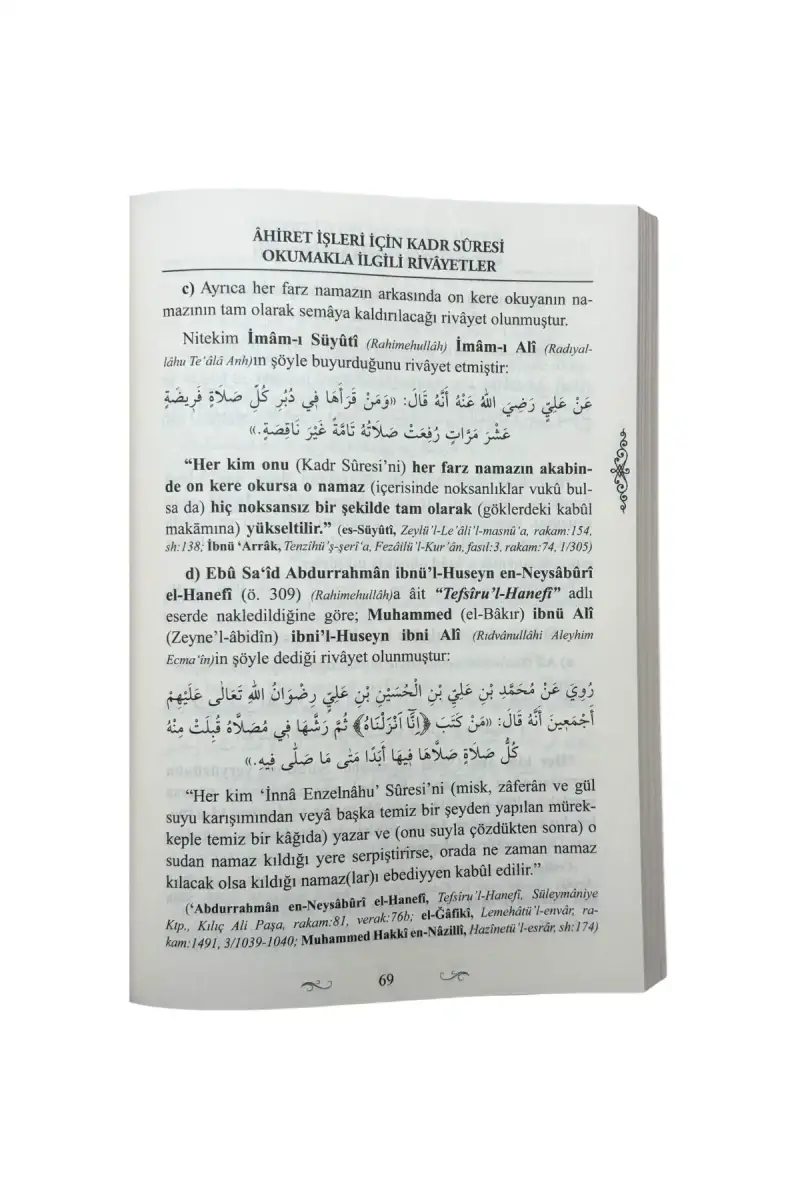 ÂHİRET İŞLERİ İÇİN KADR SÛRESİ
OKUMAKLA İLGİLİ RİVÂYETLER
c) Ayrıca her farz namazın arkasında on kere okuyanın na-
mazının tam olarak semâya kaldırılacağı rivâyet olunmuştur.
Nitekim İmâm-ı Süyûtî (Rahimehullâh) İmâm-ı Alî (Radıyal-
lâhu Te‘âlâ Anh)ın şöyle buyurduğunu rivâyet etmiştir:
عَنْ عَلِيٍّ رَضِيَ اللّٰهُ عَنْهُ أَنَّهُ قَالَ: «وَمَنْ قَرَأَهَا فِي دُبُرِ كُلِّ صَلَاةٍ فَرِيضَةٍ
عَشْرَ مَرَّاتٍ رُفِعَتْ صَلَاتُهُ تَامَّةً غَيْرَ نَاقِصَةٍ.»
“Her kim onu (Kadr Sûresi’ni) her farz namazın akabin-
de on kere okursa o namaz (içerisinde noksanlıklar vukû bul-
sa da) hiç noksansız bir şekilde tam olarak (göklerdeki kabûl
makāmına) yükseltilir.” (es-Süyûtî, Zeylü’l-Le’âli’l-masnû‘a, rakam:154,
sh:138; İbnü ‘Arrâk, Tenzîhü’ş-şerî‘a, Fezâilü’l-Kur’ân, fasıl:3, rakam:74, 1/305)
d) Ebû Sa‘îd Abdurrahmân ibnü’l-Huseyn en-Neysâbûrî
el-Hanefî (ö. 309) (Rahimehullâh)a âit “Tefsîru’l-Hanefî” adlı
eserde nakledildiğine göre; Muhammed (el-Bâkır) ibnü Alî
(Zeyne’l-âbidîn) ibni’l-Huseyn ibni Alî (Rıdvânullâhi Aleyhim
Ecma‘în)in şöyle dediği rivâyet olunmuştur:
رُوِيَ عَنْ مُحَمَّدِ بْنِ عَلِيِّ بْنِ الْحُسَيْنِ بْنِ عَلِيٍّ رِضْوَانُ اللّٰهِ تَعَالَى عَلَيْهِمْ
أَجْمَعِينَ أَنَّهُ قَالَ: «مَنْ كَتَبَ ﴿إِنَّا أَنْزَلْنَاهُ﴾ ثُمَّ رَشَّهَا فِي مُصَلَّاهُ قُبِلَتْ مِنْهُ
كُلُّ صَلَاةٍ صَلَّاهَا فِيهَا أَبَدًا مَتَى مَا صَلَّى فِيهِ.»
“Her kim ‘İnnâ Enzelnâhu’ Sûresi’ni (misk, zâferân ve gül
suyu karışımından veyâ başka temiz bir şeyden yapılan mürek-
keple temiz bir kâğıda) yazar ve (onu suyla çözdükten sonra) o
sudan namaz kıldığı yere serpiştirirse, orada ne zaman namaz
kılacak olsa kıldığı namaz(lar)ı ebediyyen kabûl edilir.”
(‘Abdurrahmân en-Neysâbûrî el-Hanefî, Tefsîru’l-Hanefî, Süleymâniye
Ktp., Kılıç Ali Paşa, rakam:81, verak:76b; el-Ğâfikî, Lemehâtü’l-envâr, ra-
kam:1491, 3/1039-1040; Muhammed Hakkî en-Nâzillî, Hazînetü’l-esrâr, sh:174)
69